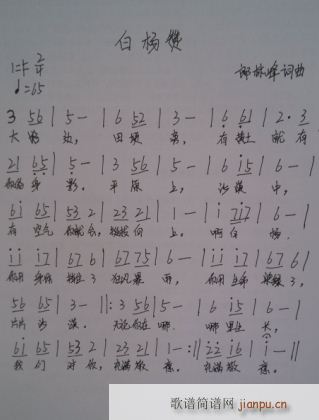 白杨赞
1=F 2/4
♩=65
邵林峰词曲
3 56 | 5 - | 6 52 | 3 - | 6 61 | 2· 3
大路边, 田埂旁, 有黄土就有
21 65 | 5 - | 3 56 | 5 - | 6 i5 | 6 -
你的身影. 平原上, 沙漠中,
6i 65 | 53 2 | 23 21 | 1 - | i 7i7 | 6 -
有空气你就会 向上 啊白杨
ii i7 | 67 6 | 67 75 | 6 - | ii i7 | 67 6
你用身躯挡住了狂风暴雨, 你用生命 了
56 65 | 3 - ‖: 3 56 | 5 - | 6 i5 | 6 -
片片沙漠. 无论你在哪 哪里生长,
6i 65 | 53 2 | 23 21 | 1 - :‖ 22 i6 | i - ‖
我们对你, 充满敬意. 充满敬意.
歌谱简谱网
jianpu.cn